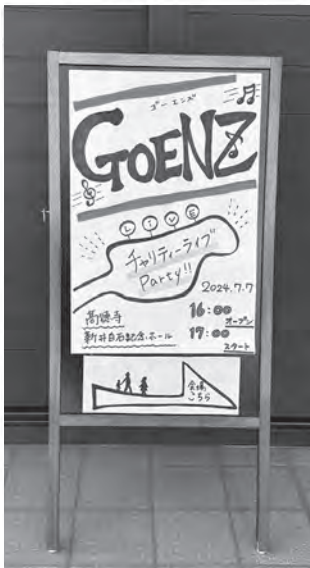 ゴーエンズ
GOENZ
LIVE
チャリティーライブ
Party!!
2024.7.7
高徳寺
新井白石記念ホール
16:00
オープン
17:00
スタート
会場
こちら